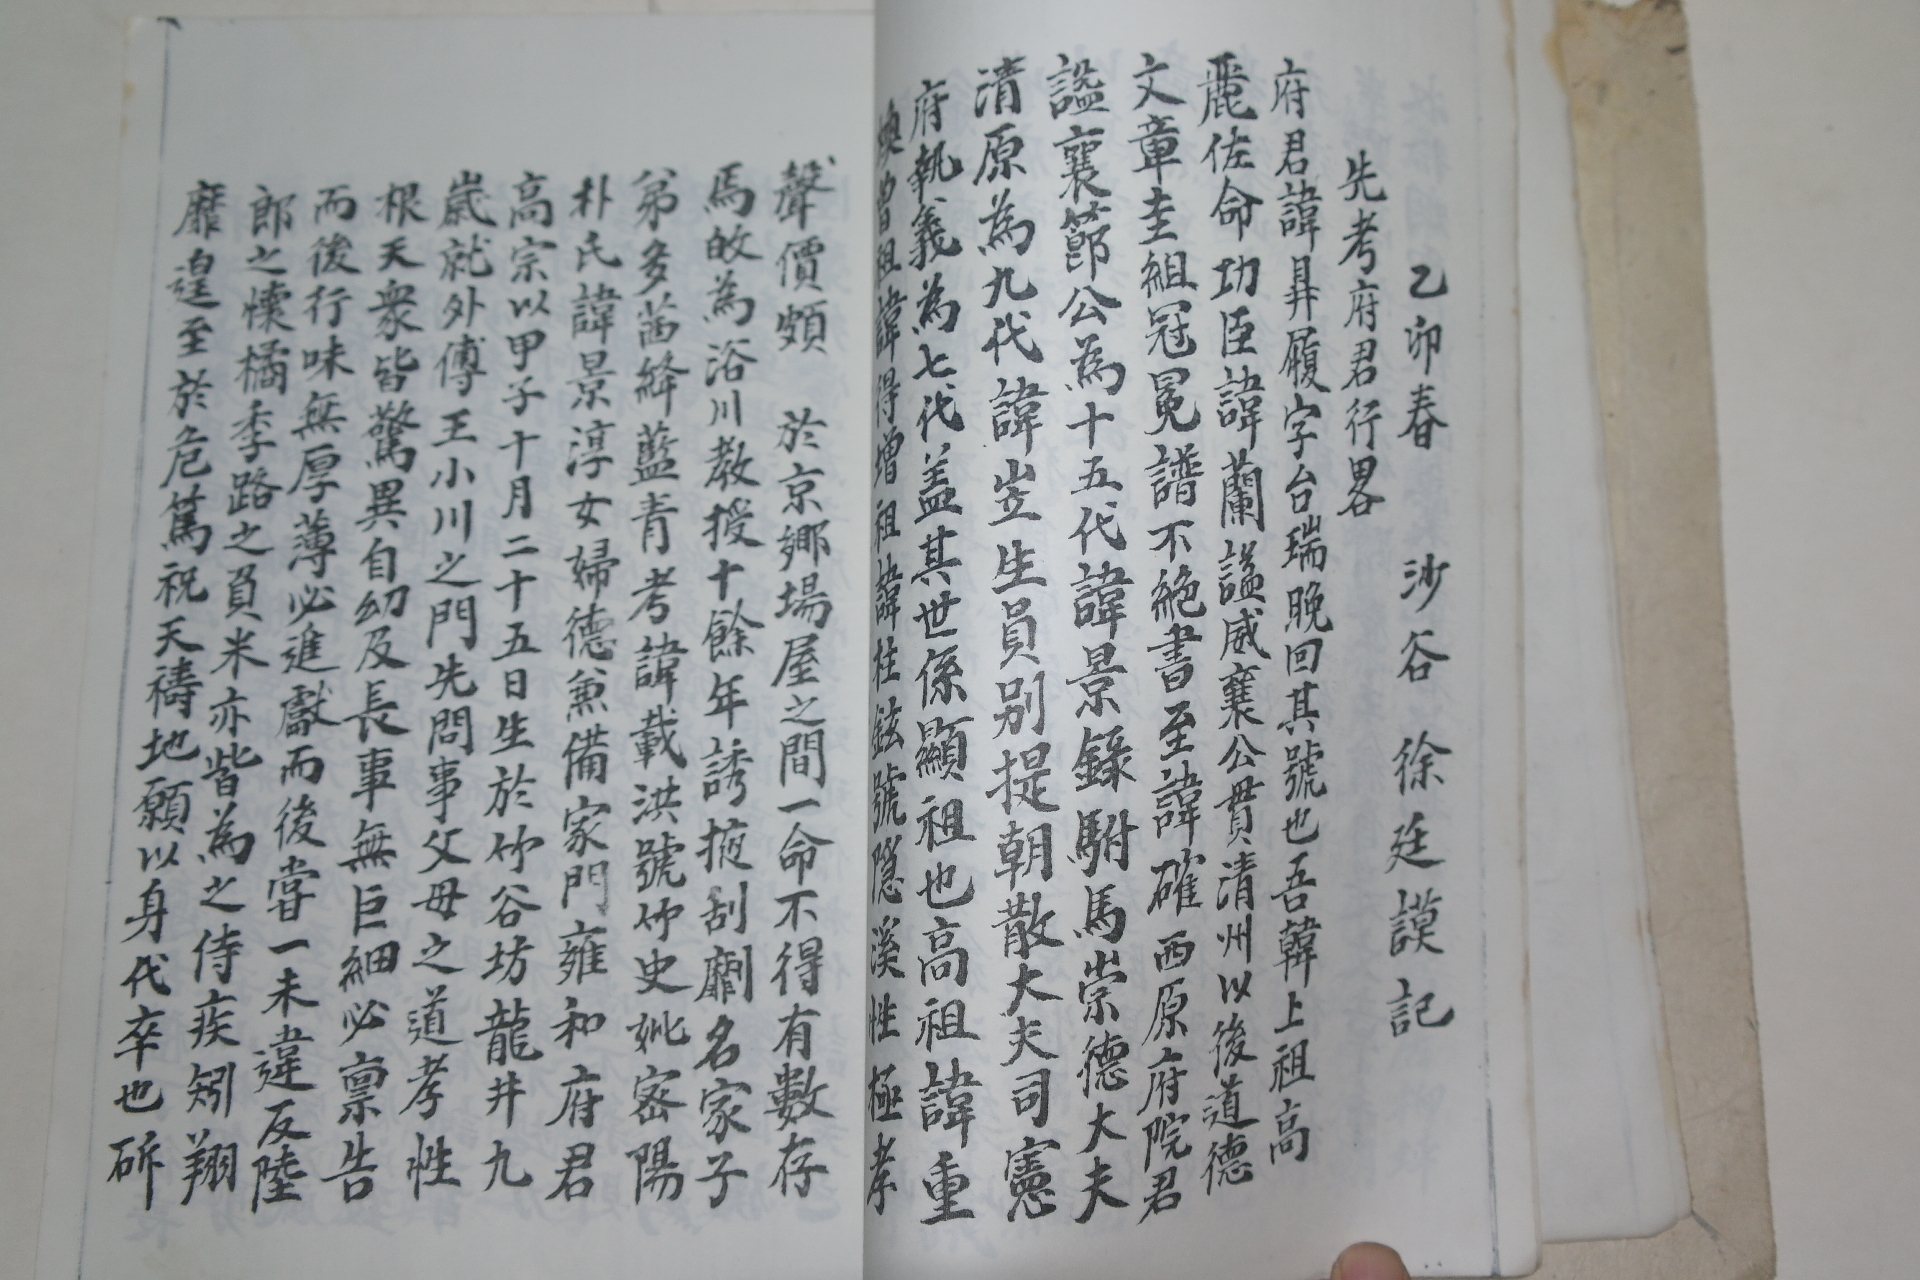 乙卯春 沙谷 徐廷謨記
先考府君行畧
府君諱昇履字台瑞晩回其號也吾韓上祖高
麗佐命功臣諱蘭謚威襄公貫清州以後道德
文章圭組冠冕譜不絶書至諱確西原府院君
謚襄節公為十五代諱景錄駙馬崇德大夫
清原為九代諱岦生員别提朝散大夫司憲
府執義為七代盖其世係顯祖也高祖諱重
煥曽祖諱得增祖諱柱鉉號隱溪性極孝
聲價頗 於京鄕場屋之間一命不得有數存
焉故為浴川教授十餘年誘掖刮劘名家子
弟多茜絳藍青考諱載洪號竹史妣密陽
朴氏諱景淳女婦德兼備家門雍和府君
高宗以甲子十月二十五日生於竹谷坊龍井九
嵗就外傅王小川之門先問事父母之道孝性
根天衆皆驚異自幼及長事無巨細必禀告
而後行味無厚薄必進獻而後甞一未違反陸
郎之懷橘季路之負米亦皆為之侍疾矧翔
靡遑至於危篤祝天禱地願以身代卒也斫